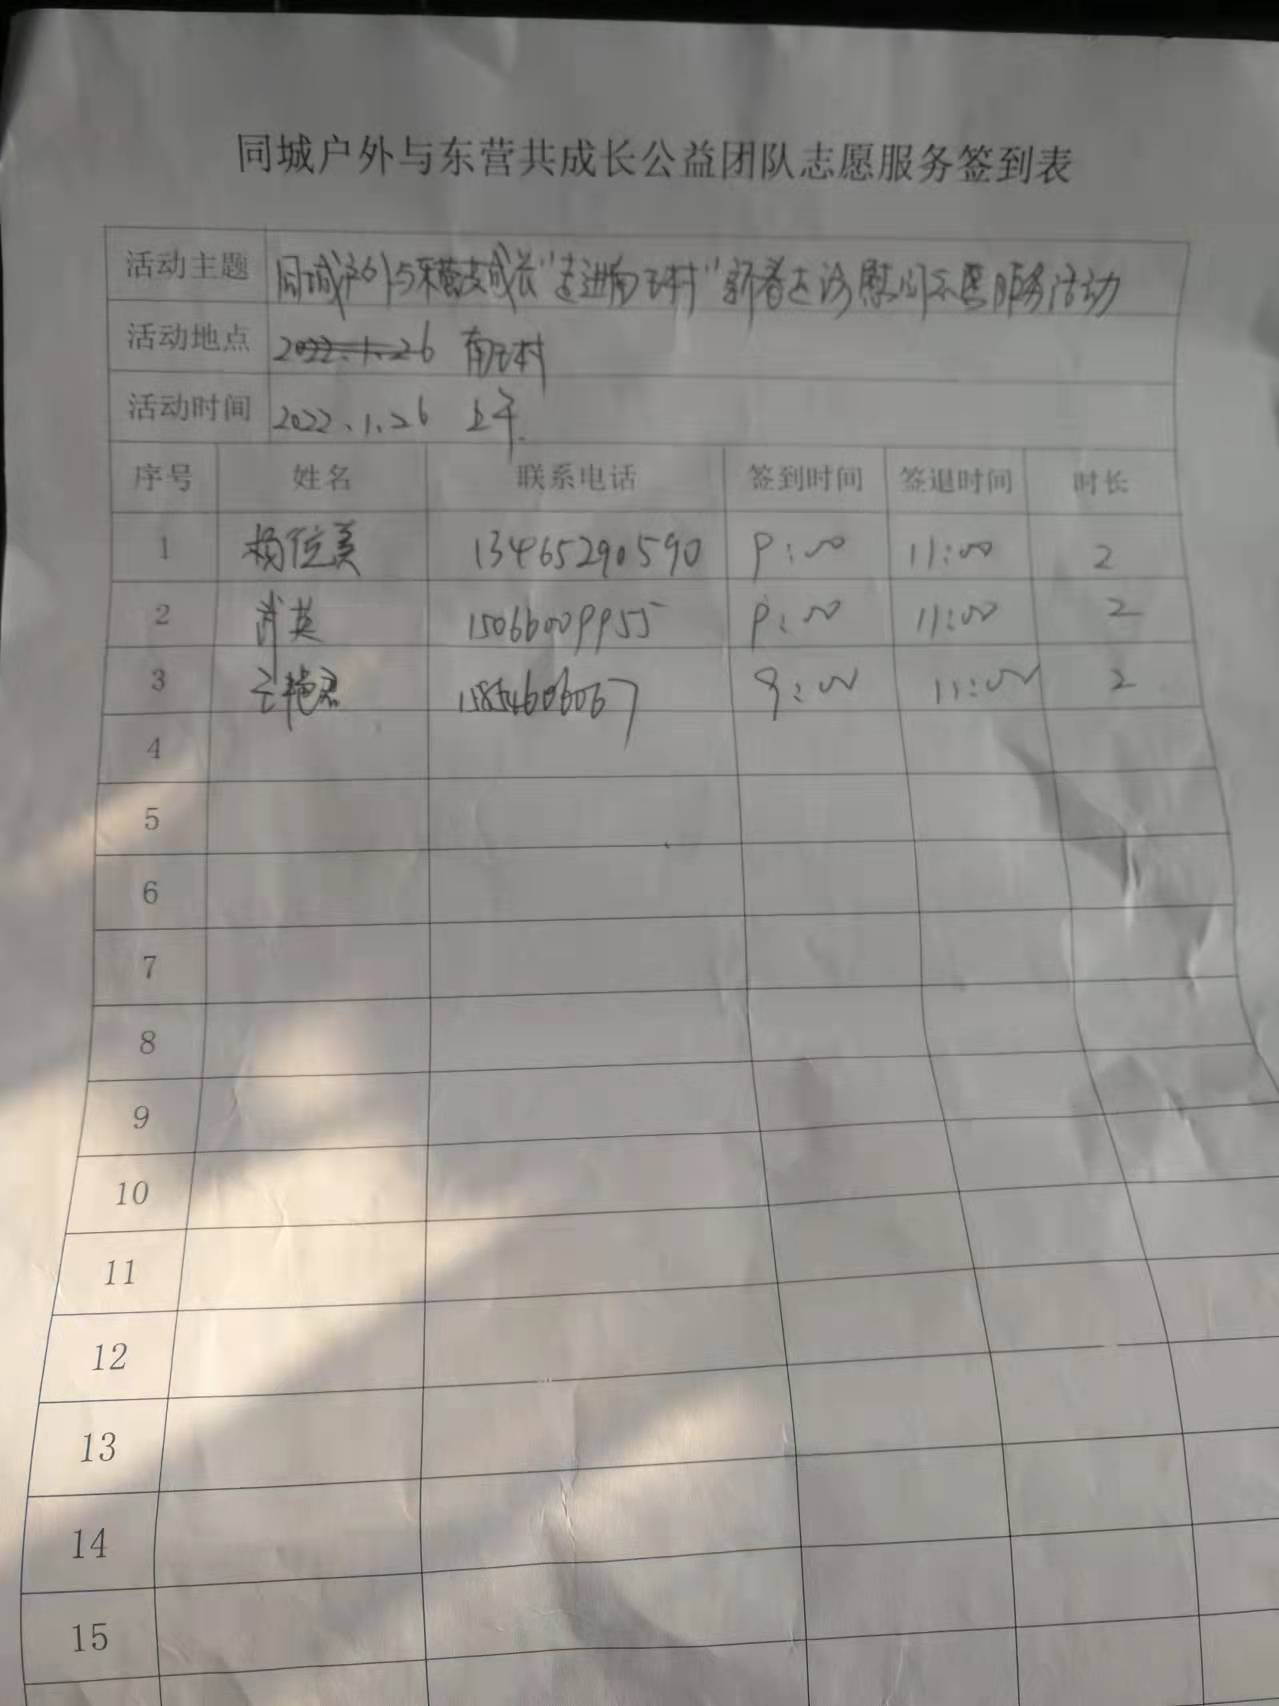 同城户外与东营共成长公益团队志愿服务签到表
活动主题 同城户外与东营共成长"走进南王村"新春走访慰问志愿服务活动
活动地点 2022.1.26 南王村
活动时间 2022.1.26 上午
序号 姓名 联系电话 签到时间 签退时间 时长
1 杨位美 13465290590 9:00 11:00 2
2 肖英 15066009955 9:00 11:00 2
3 王艳君 15854606067 9:00 11:00 2
4
5
6
7
8
9
10
11
12
13
14
15